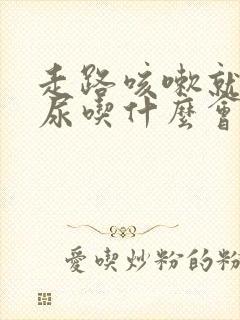 走路咳嗽就
尿喫什麼會
愛喫炒粉的粉